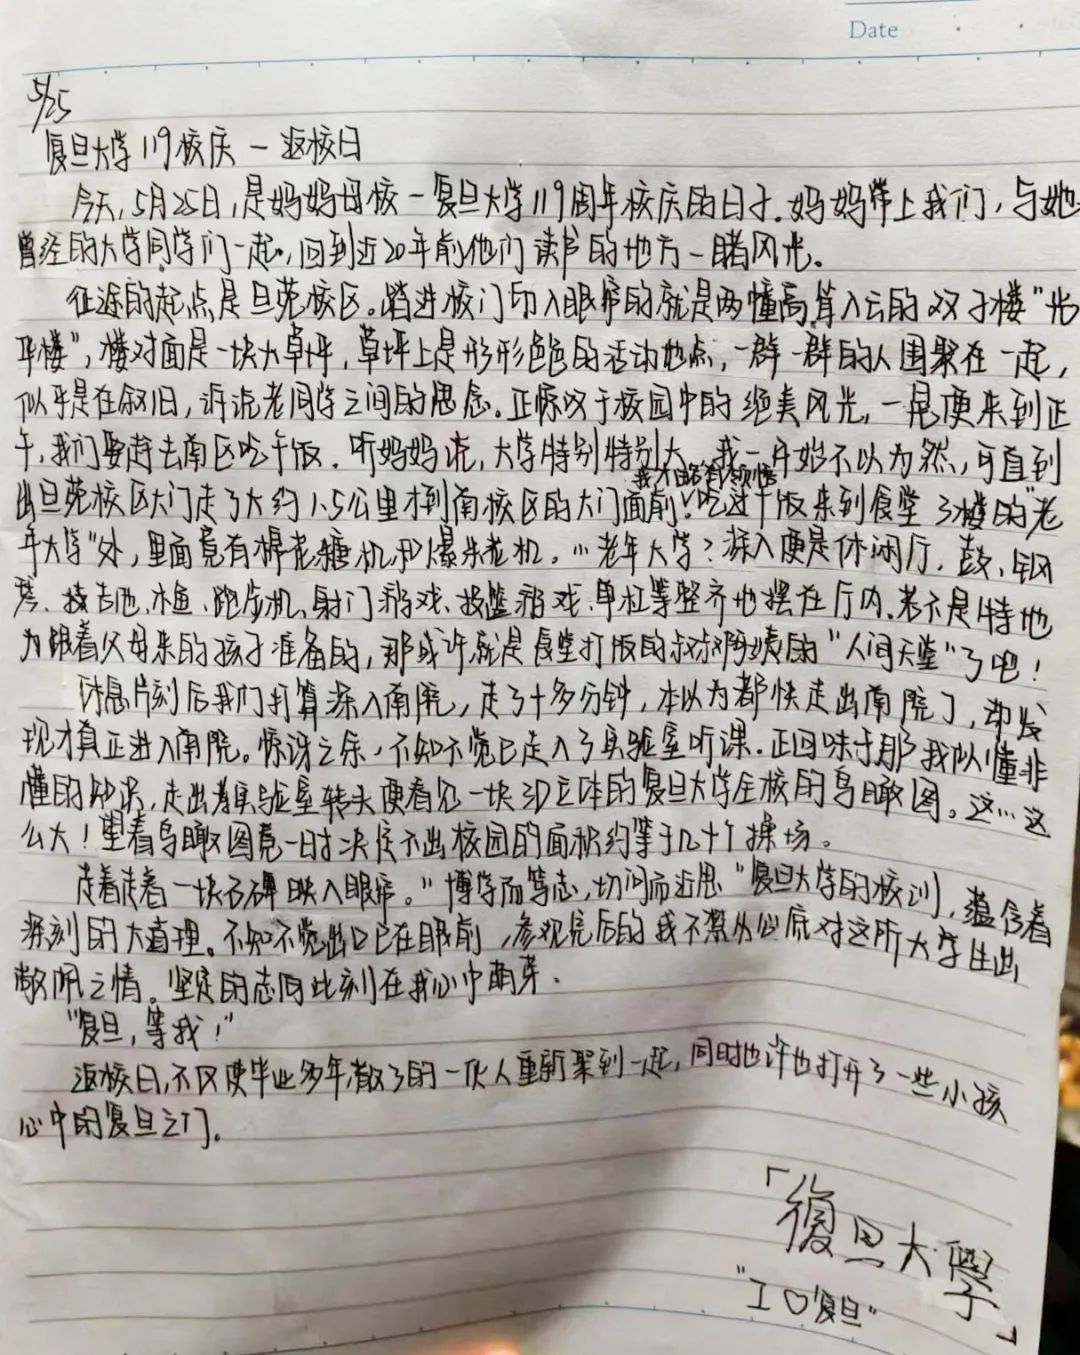 Date
5/25
复旦大学119校庆－返校日
今天，5月25日，是妈妈母校－复旦大学119周年校庆的日子。妈妈带上我们，与她
曾经的大学同学们一起，回到近20年前他们读书的地方一睹风光。
征途的起点是旦苑校区。踏进校门印入眼帘的就是两幢高耸入云的双子楼"光
华楼"，楼对面是一块大草坪，草坪上是形形色色的活动地点，一群一群的人围聚在一起，
似乎是在叙旧，诉说老同学之间的思念。正惊叹于校园中的绝美风光，一晃便来到正
午，我们要赶去南区吃午饭。听妈妈说，大学特别特别大，我一开始不以为然，可直到
我才略有领悟
出旦苑校区大门走了大约1.5公里才到南校区的大门面前！吃过午饭来到食堂3楼的"老
年大学"处，里面竟有棉花糖机和爆米花机。…老年大学？深入便是休闲厅，鼓、钢
琴、吉他、木鱼、跑步机、射门游戏、投篮游戏、单杠等整齐地摆在厅内，若不是特地
为跟着父母来的孩子准备的，那或许就是食堂打饭的叔叔阿姨的"人间天堂"了吧！
休息片刻后我们打算深入南院，走了十多分钟，本以为都快走出南院了，却发
现才真正进入南院。惊讶之余，不知不觉已走入了实验室听课。正回味于那我似懂非
懂的知识，走出着实验室转头便看见一块3D立体的复旦大学全校的鸟瞰图。这…这
么大！望着鸟瞰图竟一时决定不出校园的面积约等于几十个操场。
走着走着一块石碑映入眼帘。"博学而笃志，切问而近思"复旦大学的校训，蕴含着
深刻的大道理。不知不觉出口已在眼前，参观完后的我不禁从心底对这所大学生出
敬佩之情。坚定的志向此刻在我心中萌芽。
"复旦，等我！"
返校日，不仅使毕业多年散了的一伙人重新聚到一起，同时也许也打开了一些小孩
心中的复旦之门。
「復旦大學」
"I♡复旦"